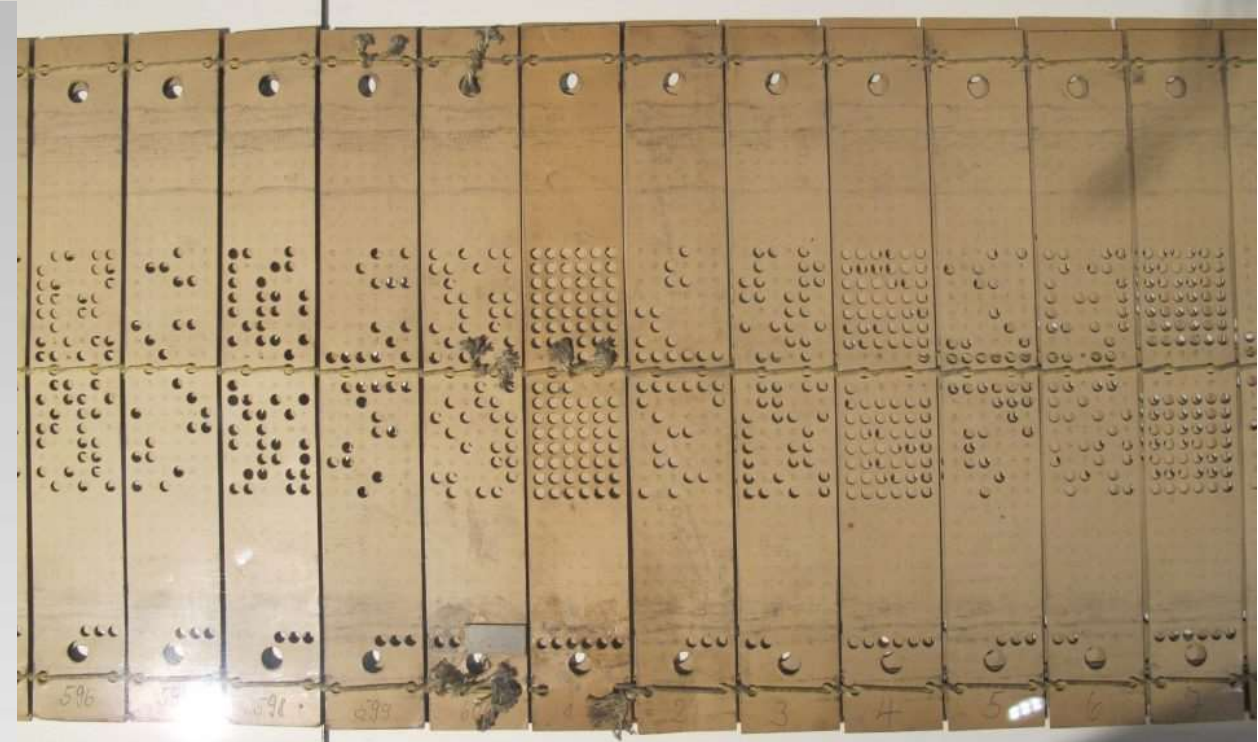 596 59 598 599 60 1 2 3 4 5 6 7